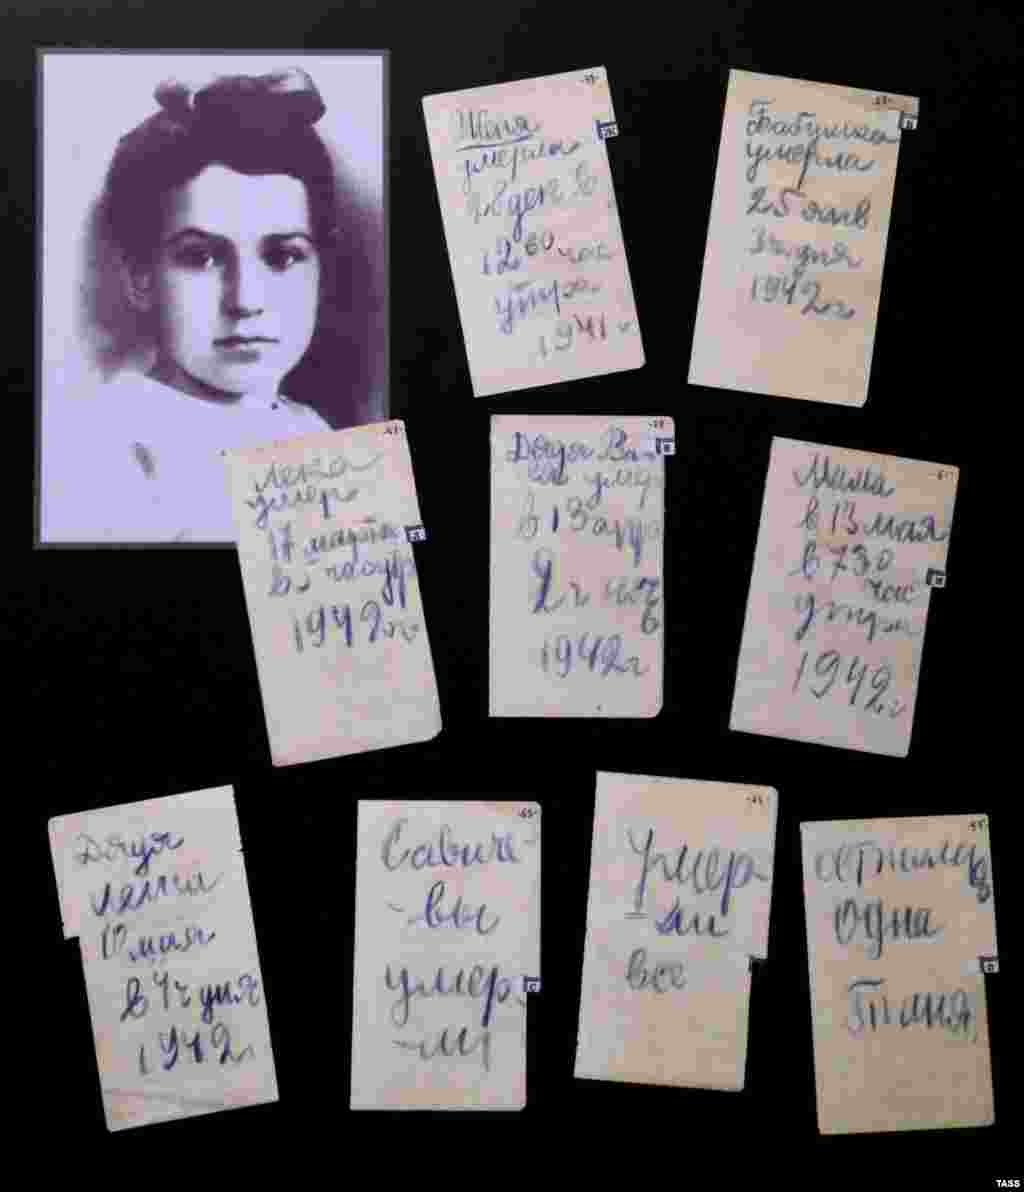 Женя
умерла
28 дек в
12 00 час
утра
1941 г
Бабушка
умерла
25 янв
3 ч. дня
1942 г
Лека
умер
17 марта
1942 г
Дядя Ва
ся умер
в 13 апр
2 ч ноч
1942 г
Мама
в 13 мая
в 7 30
час
утра
1942 г
Дядя
Леша
10 мая
в 4 ч дня
1942
Савиче
-вы
умер
-ли
Умер
-ли
все
Осталась
одна
Таня
TASS